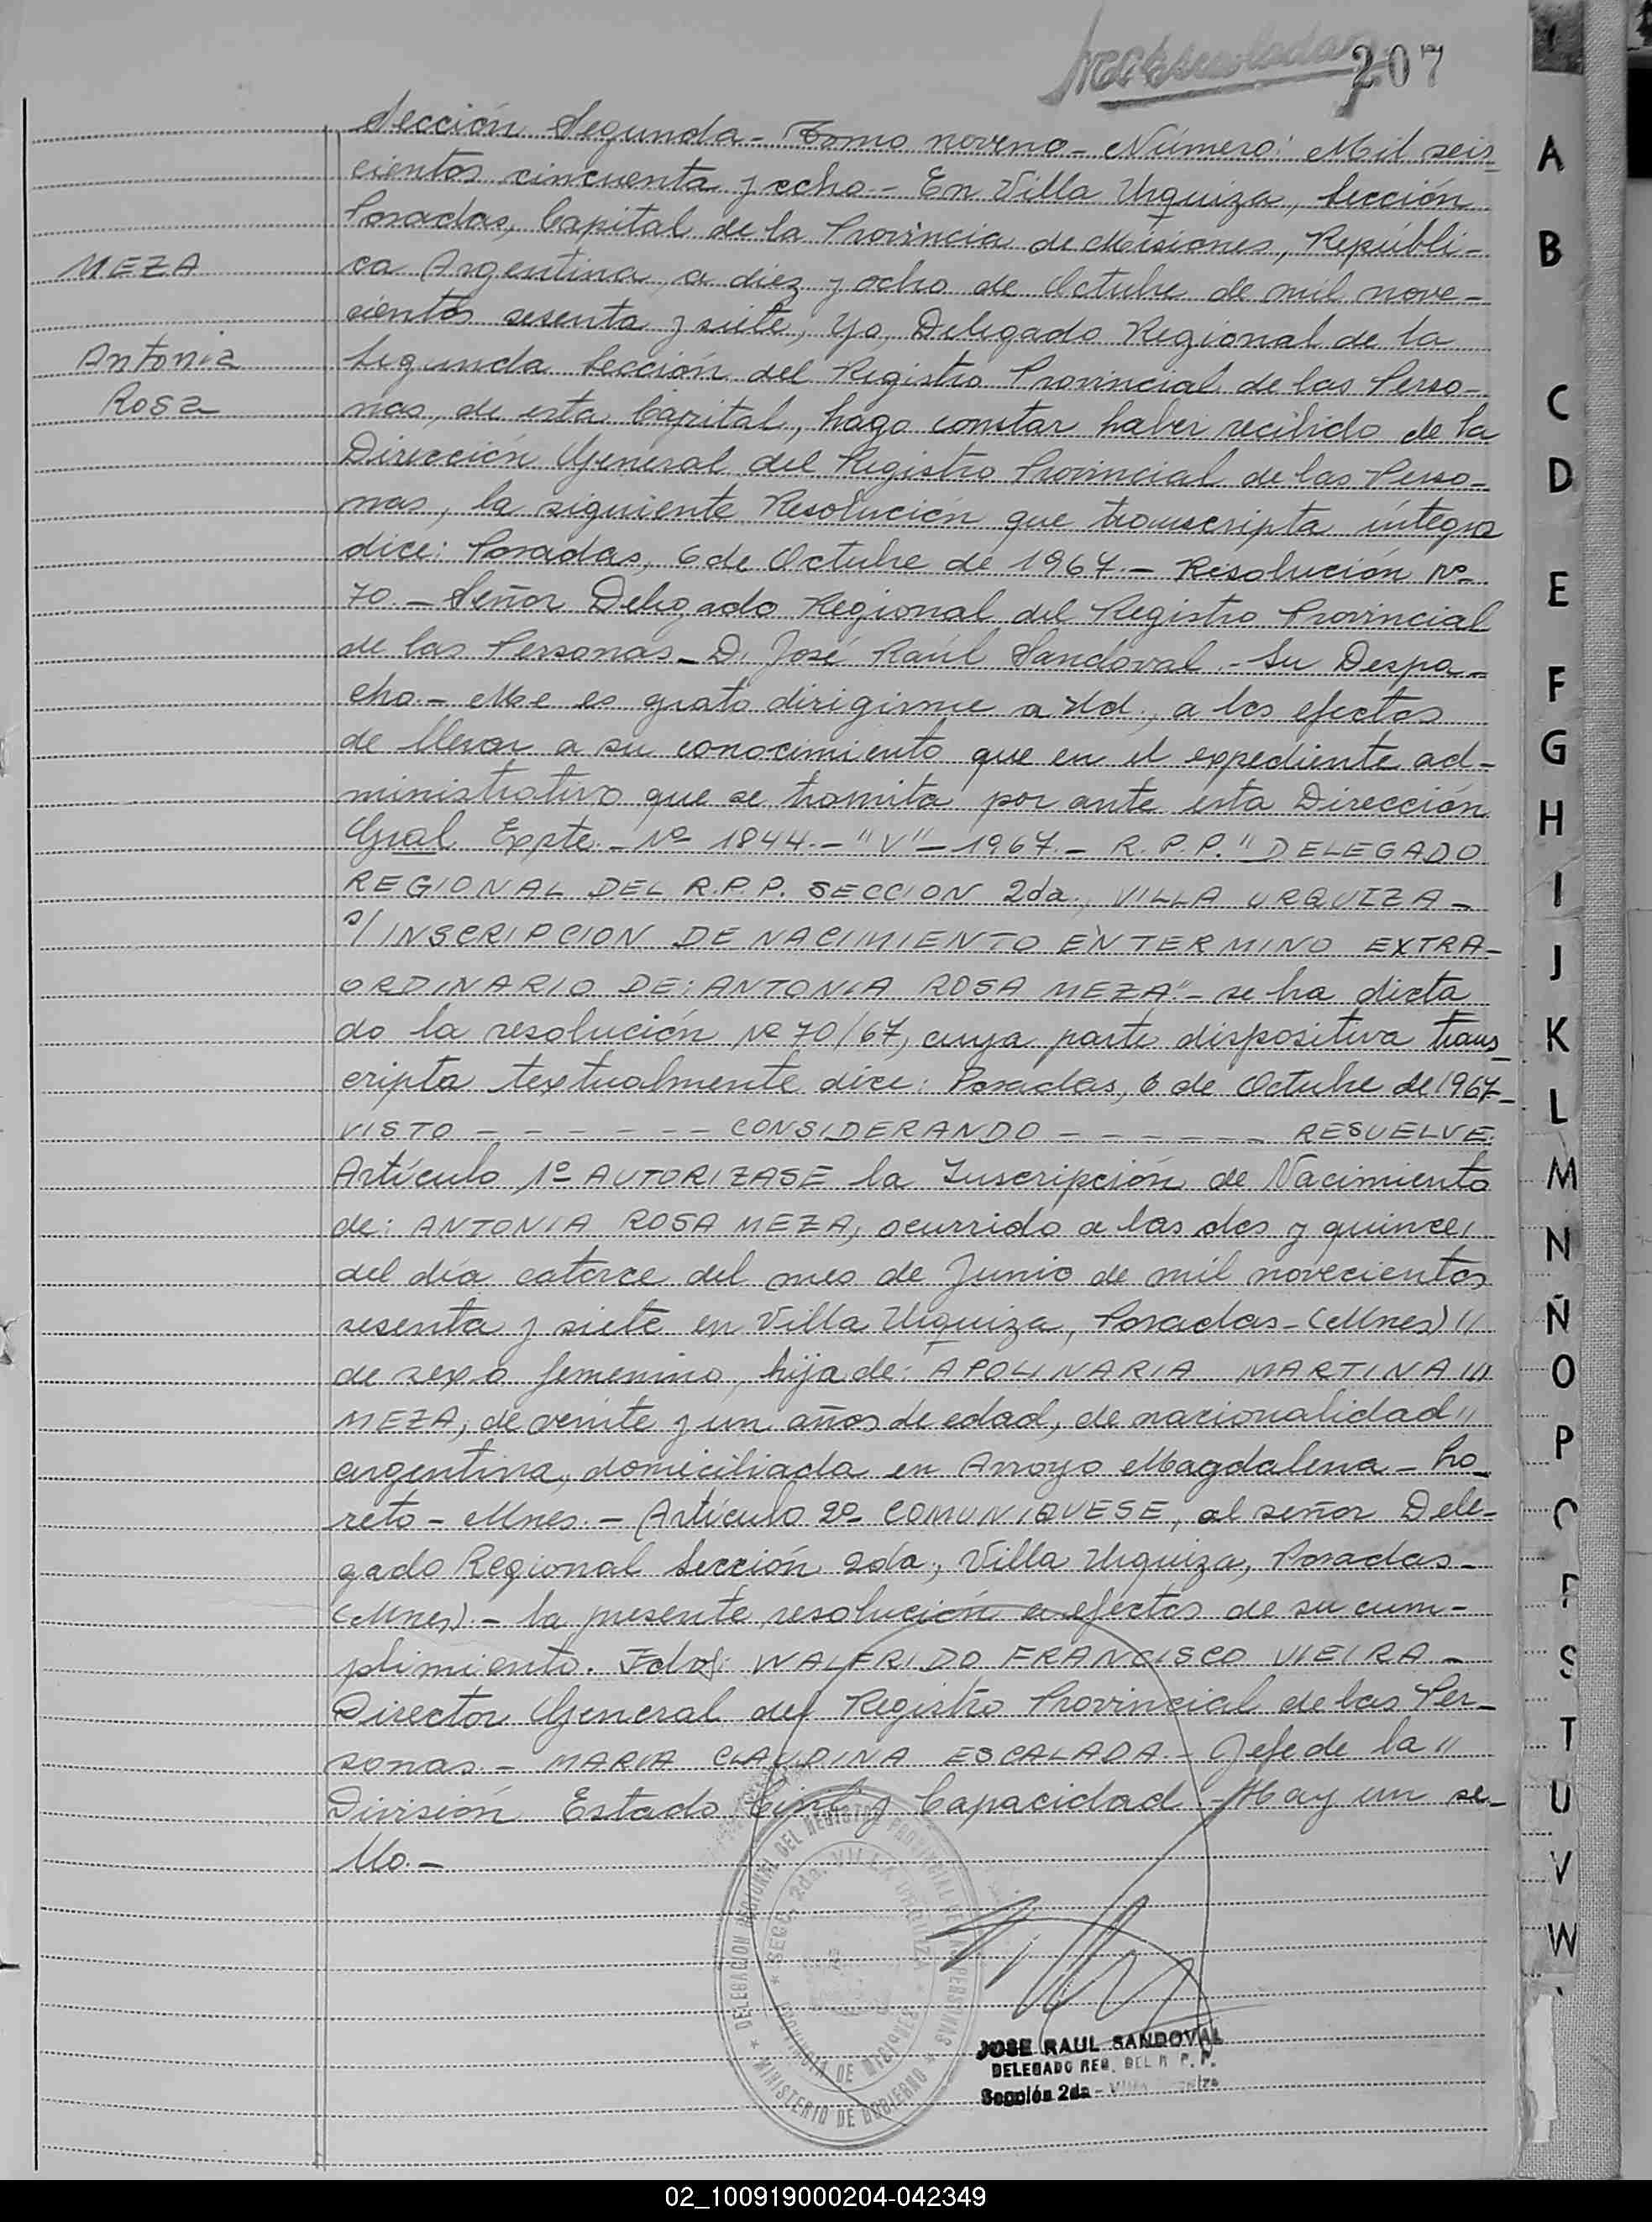 207
Sección Segunda - Tomo noveno - Número: Mil seis-
cientos cincuenta y ocho - En Villa Urquiza, Sección
Posadas, Capital de la Provincia de Misiones, Repúbli-
MEZA
ca Argentina, a diez y ocho de Octubre de mil nove-
cientos sesenta y siete, Yo, Delegado Regional de la
Antonia
Segunda Sección del Registro Provincial de las Perso-
Rosa
nas, de esta Capital, hago constar haber recibido de la
Dirección General del Registro Provincial de las Perso-
nas, la siguiente Resolución que transcripta íntegra
dice: Posadas, 6 de Octubre de 1967.- Resolución Nº
70.- Señor Delegado Regional del Registro Provincial
de las Personas - D. José Raúl Sandoval - Su Despa-
cho.- Me es grato dirigirme a Ud., a los efectos
de llevar a su conocimiento que en el expediente ad-
ministrativo que se tramita por ante esta Dirección
Gral Expte.- Nº 1844.- "V" - 1967.- R.P.P. "DELEGADO
REGIONAL DEL R.P.P. SECCION 2da., VILLA URQUIZA -
s/ INSCRIPCION DE NACIMIENTO EN TERMINO EXTRA-
ORDINARIO DE: ANTONIA ROSA MEZA" - se ha dicta
do la resolución Nº 70/67, cuya parte dispositiva trans-
cripta textualmente dice: Posadas, 6 de Octubre de 1967-
VISTO - - - - - - CONSIDERANDO - - - - - - RESUELVE:
Artículo 1º AUTORIZASE la Inscripción de Nacimiento
de: ANTONIA ROSA MEZA, ocurrido a las dos y quince,
del día catorce del mes de Junio de mil novecientos
sesenta y siete en Villa Urquiza, Posadas - (Mnes) "
de sexo femenino, hija de: APOLINARIA MARTINA "
MEZA, de veinte y un años de edad, de nacionalidad "
argentina, domiciliada en Arroyo Magdalena - Lo-
reto - Mnes. - Artículo 2º COMUNIQUESE, al señor Dele-
gado Regional Sección 2da, Villa Urquiza, Posadas -
(Mnes) - la presente resolución a efectos de su cum-
plimiento. Fdo: WALFRIDO FRANCISCO VIEIRA -
Director General del Registro Provincial de las Per-
sonas. - MARIA CLAUDINA ESCALADA - Jefe de la "
División Estado Civil y Capacidad - Hay un se-
llo.-
DELEGACION REGIONAL DEL REGISTRO PROVINCIAL DE LAS PERSONAS
SECC. 2da. VILLA URQUIZA
PROVINCIA DE MISIONES
MINISTERIO DE GOBIERNO
JOSE RAUL SANDOVAL
DELEGADO REG. DEL R.P.P.
Sección 2da - Villa Urquiza
A
B
C
D
E
F
G
H
I
J
K
L
M
N
Ñ
O
P
S
T
U
V
W
02_100919000204-042349